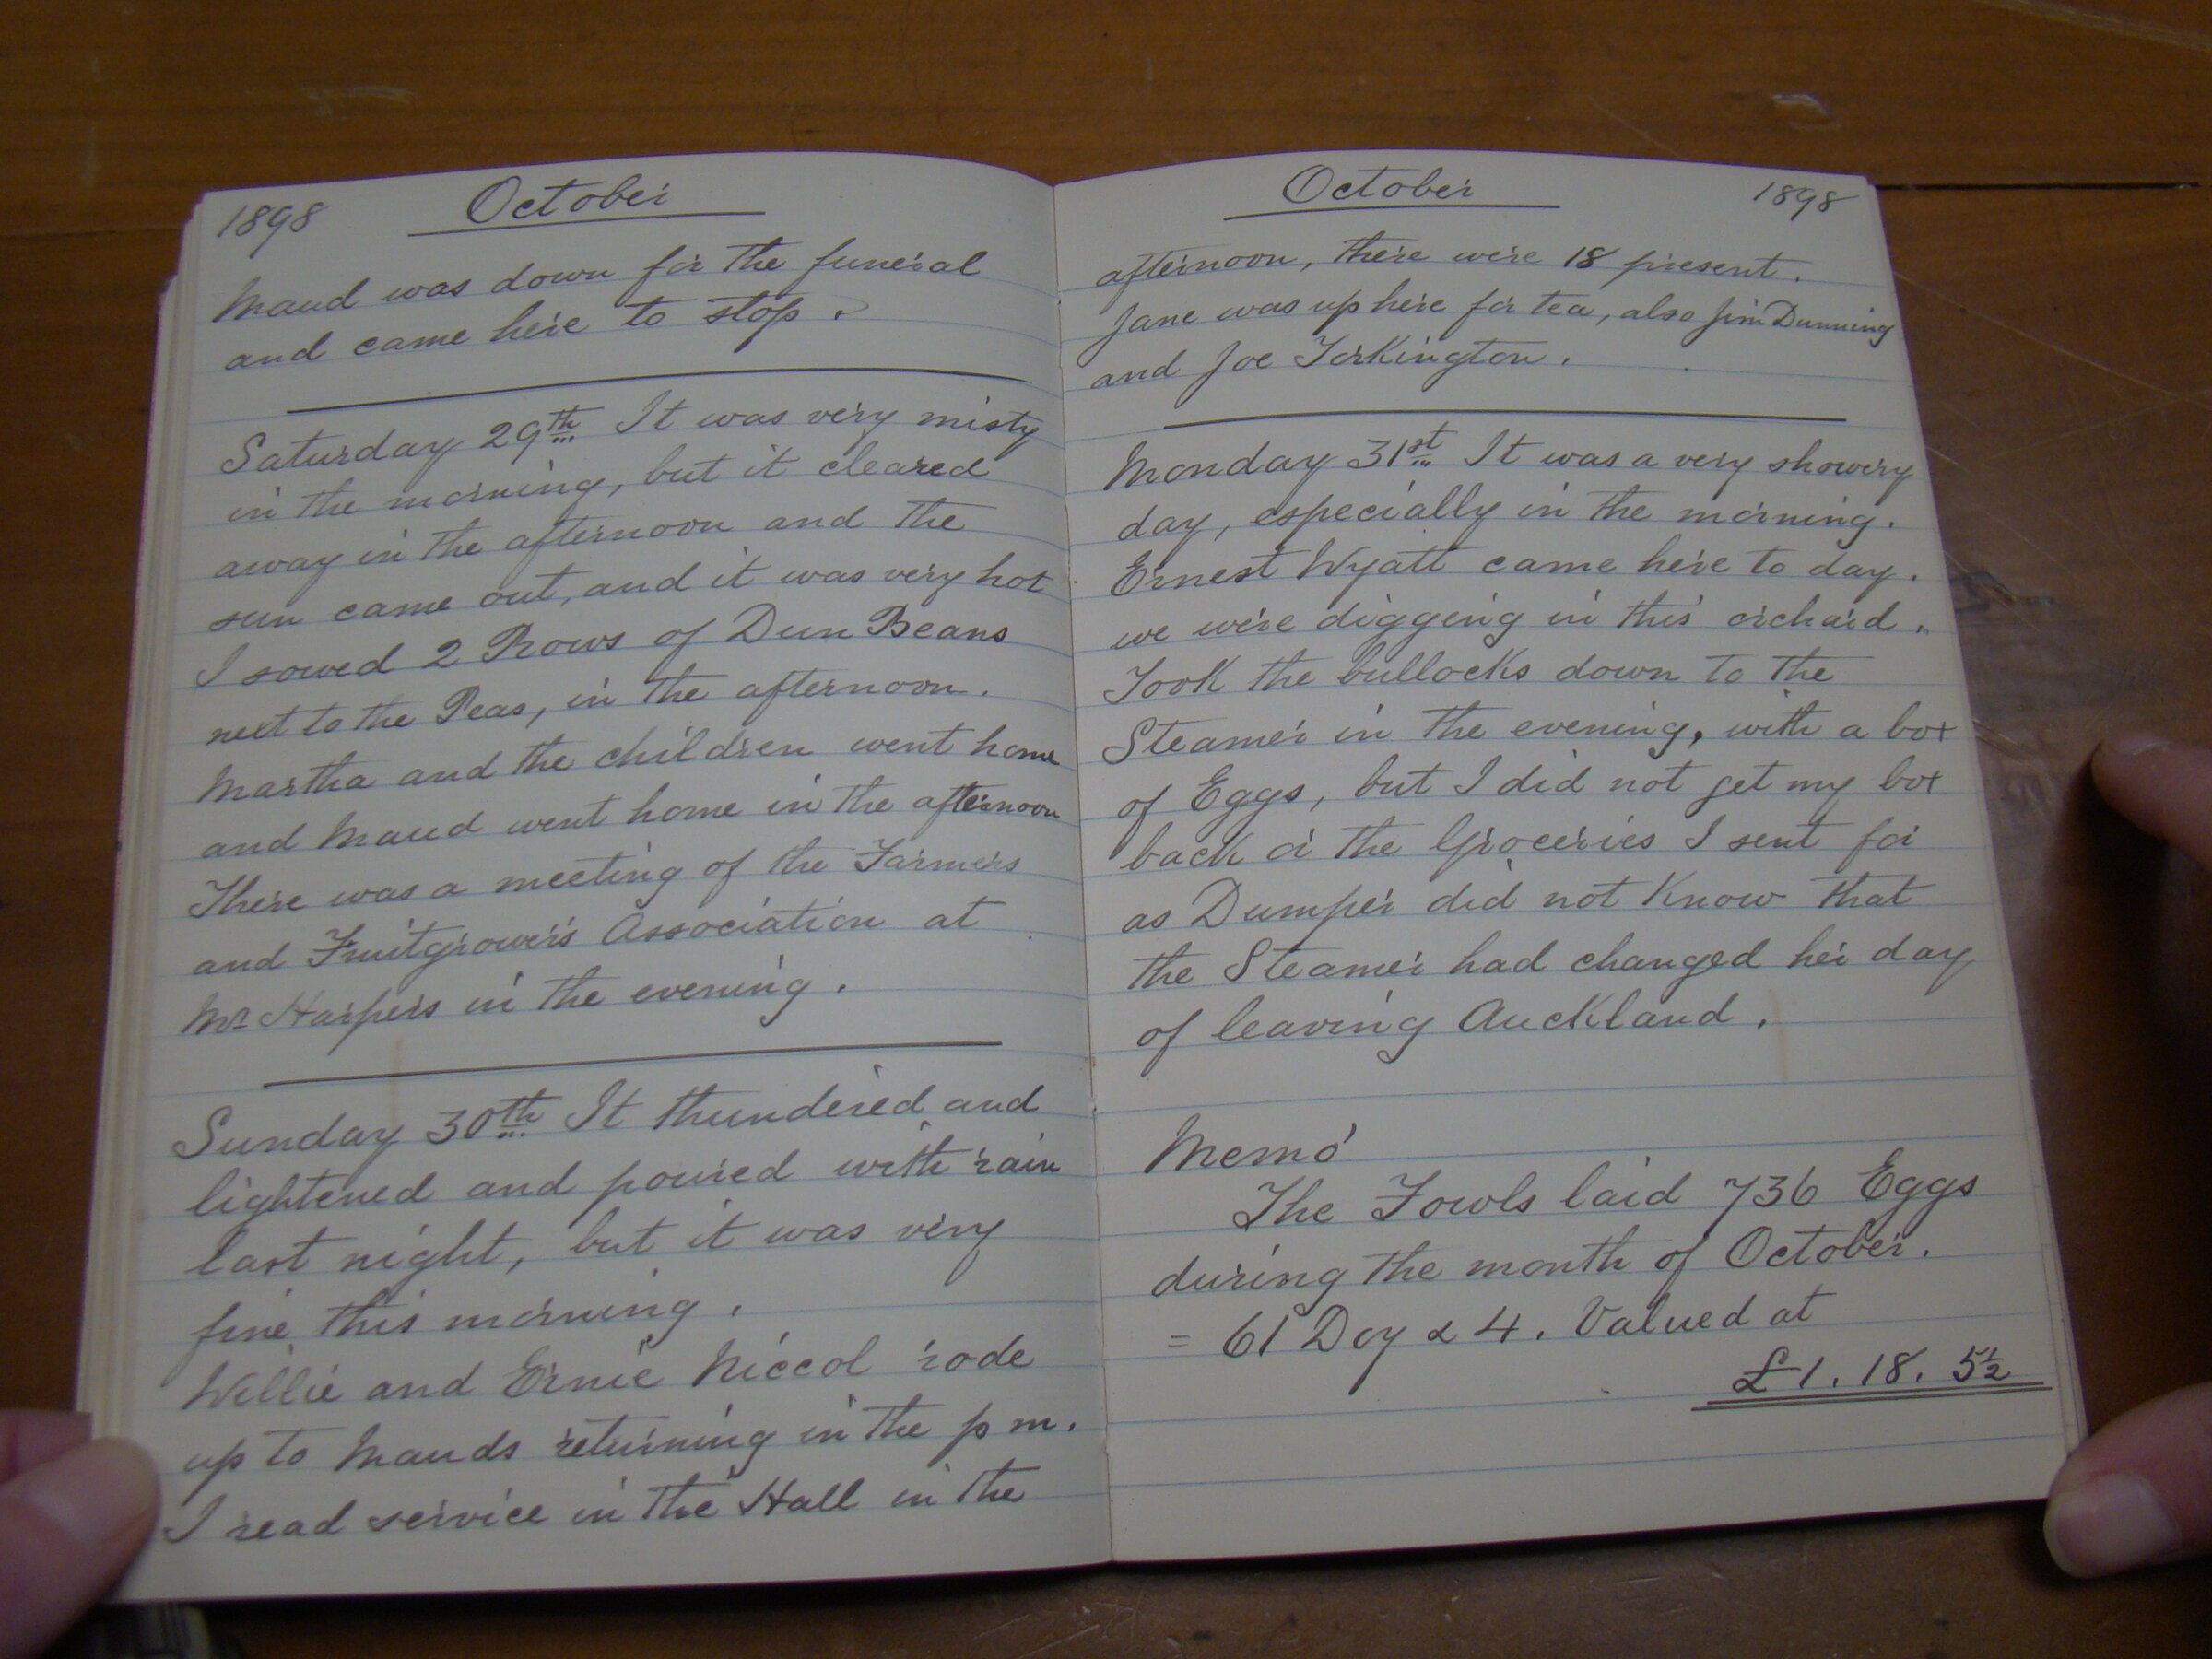 1898 October
Maud was down for the funeral
and came here to stop.
Saturday 29th It was very misty
in the morning, but it cleared
away in the afternoon and the
sun came out, and it was very hot
I sowed 2 Rows of Dun Beans
next to the Peas, in the afternoon.
Martha and the children went home
and Maud went home in the afternoon
There was a meeting of the Farmers
and Fruitgrower's Association at
Mr Harpers in the evening.
Sunday 30th It thundered and
lightened and poured with rain
last night, but it was very
fine this morning.
Willie and Ernie Niccol rode
up to Mauds returning in the p m.
I read service in the Hall in the
October 1898
afternoon, there were 18 present.
Jane was up here for tea, also Jim Dunning
and Joe Torkington.
Monday 31st It was a very showery
day, especially in the morning.
Ernest Wyatt came here to day.
we were digging in this orchard.
Took the bullocks down to the
Steamer in the evening, with a box
of Eggs, but I did not get my box
back or the Groceries I sent for
as Dumper did not know that
the Steamer had changed her day
of leaving Auckland.
Memo
The Fowls laid 736 Eggs
during the month of October.
= 61 Doz & 4. Valued at
£1. 18. 5½